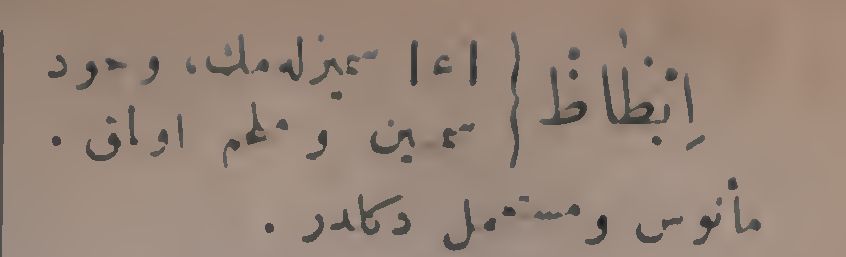 اِبْظاظ { ا ع ا سميزله‌مك، وجود
سمين وملحم اولمق.
مأنوس ومستعمل دكلدر.